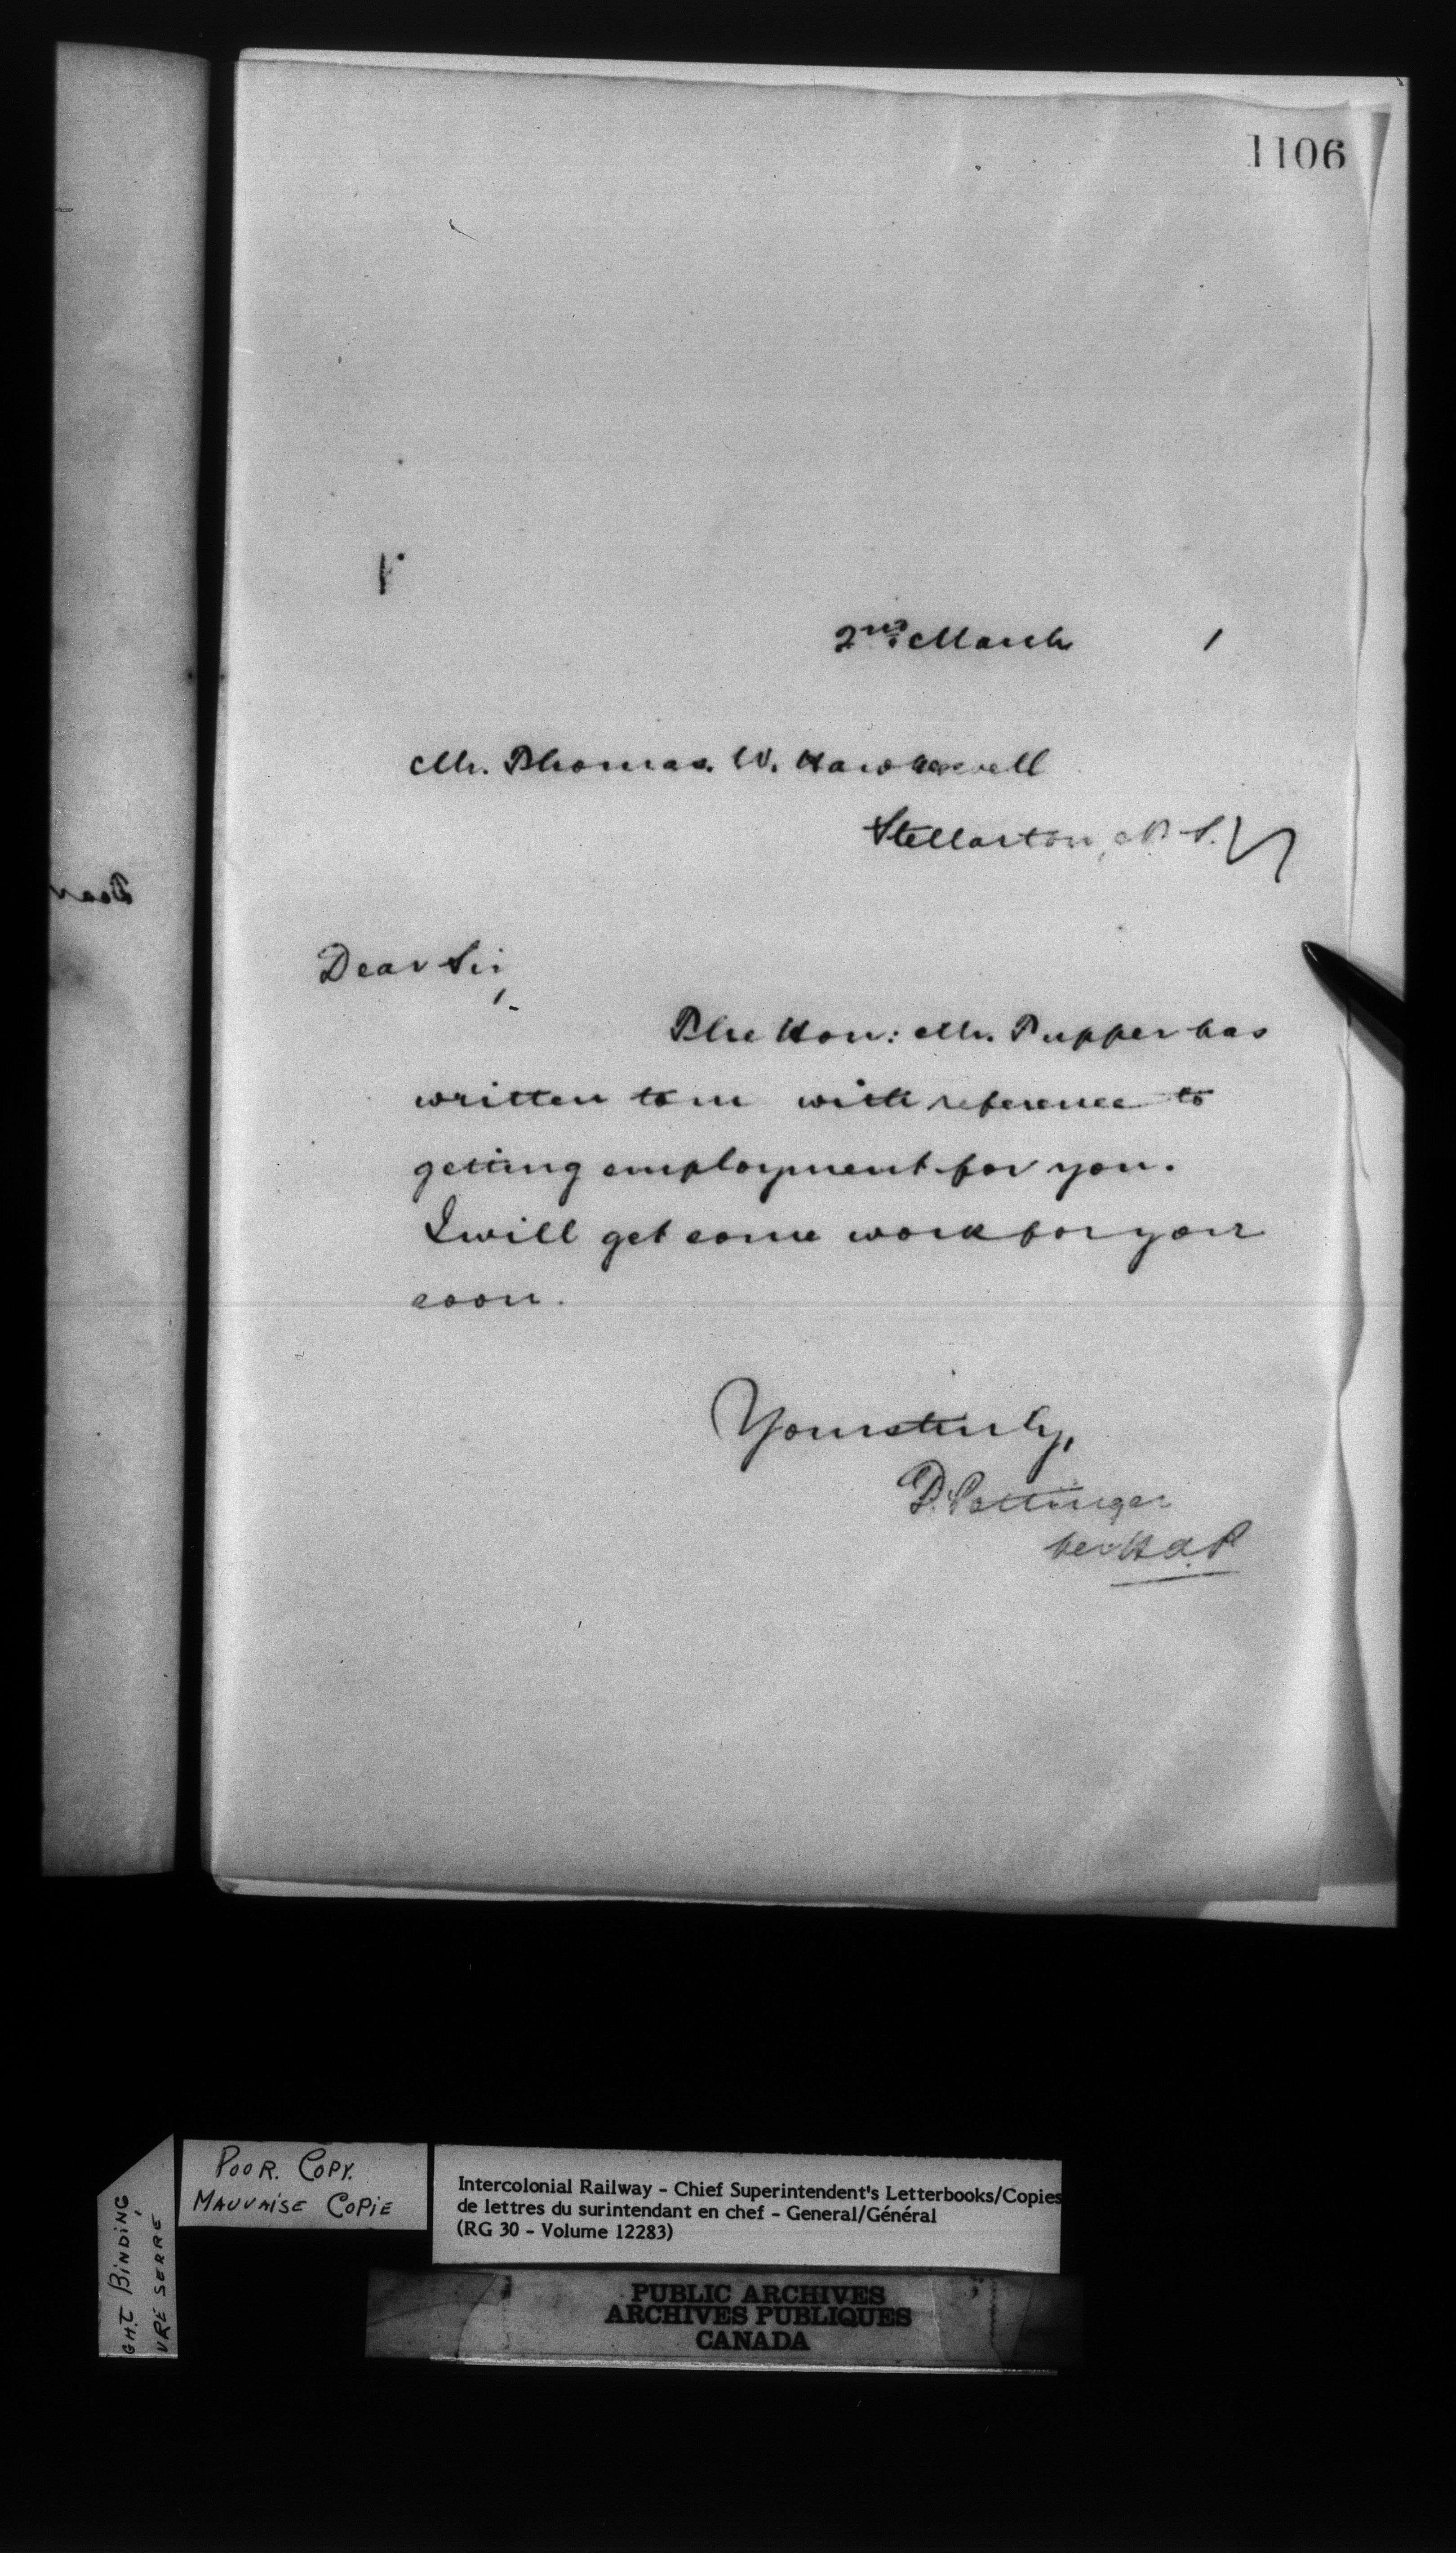 1106
2nd March 1
Mr. Thomas W. Hawkeswell
Stellarton, N. S.
Dear Sir,
The Hon: Mr. Tupper has
written to me with reference to
getting employment for you.
I will get some work for you
soon.
Yours truly,
D. Pottinger
per H A P
Dear
POOR. COPY.
MAUVAISE COPIE
GHT BINDING
VRE SERRE
Intercolonial Railway - Chief Superintendent's Letterbooks/Copies
de lettres du surintendant en chef - General/Général
(RG 30 - Volume 12283)
PUBLIC ARCHIVES
ARCHIVES PUBLIQUES
CANADA